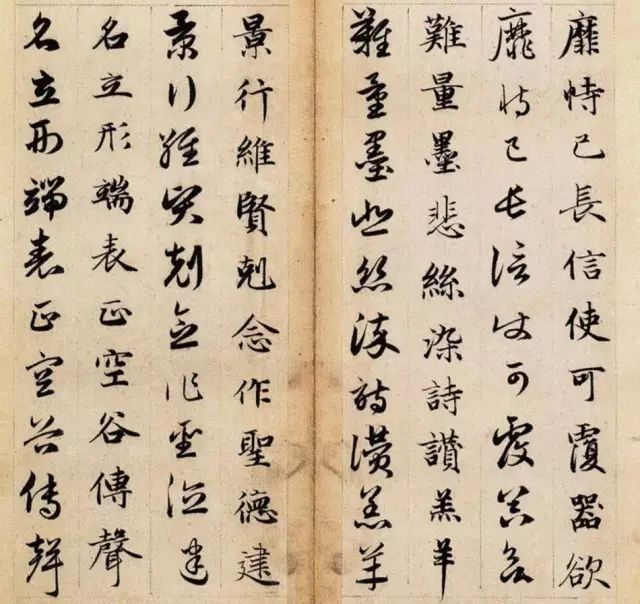 靡恃己長信使可覆器欲
靡恃己長信使可覆器欲
難量墨悲絲染詩讚羔羊
難量墨悲絲染詩讚羔羊
景行維賢剋念作聖德建
景行維賢剋念作聖德建
名立形端表正空谷傳聲
名立形端表正空谷傳聲